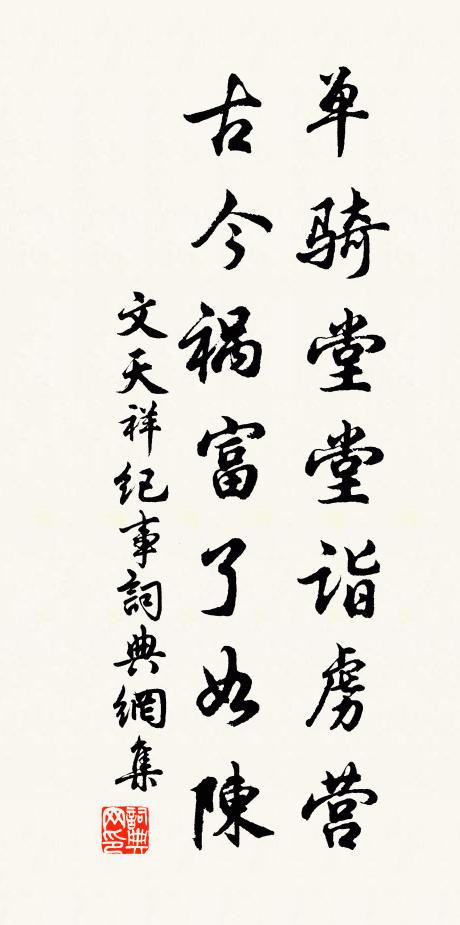 单骑堂堂诣虏营
古今祸富了如陳
文天祥纪事詞典網集
詞典网印